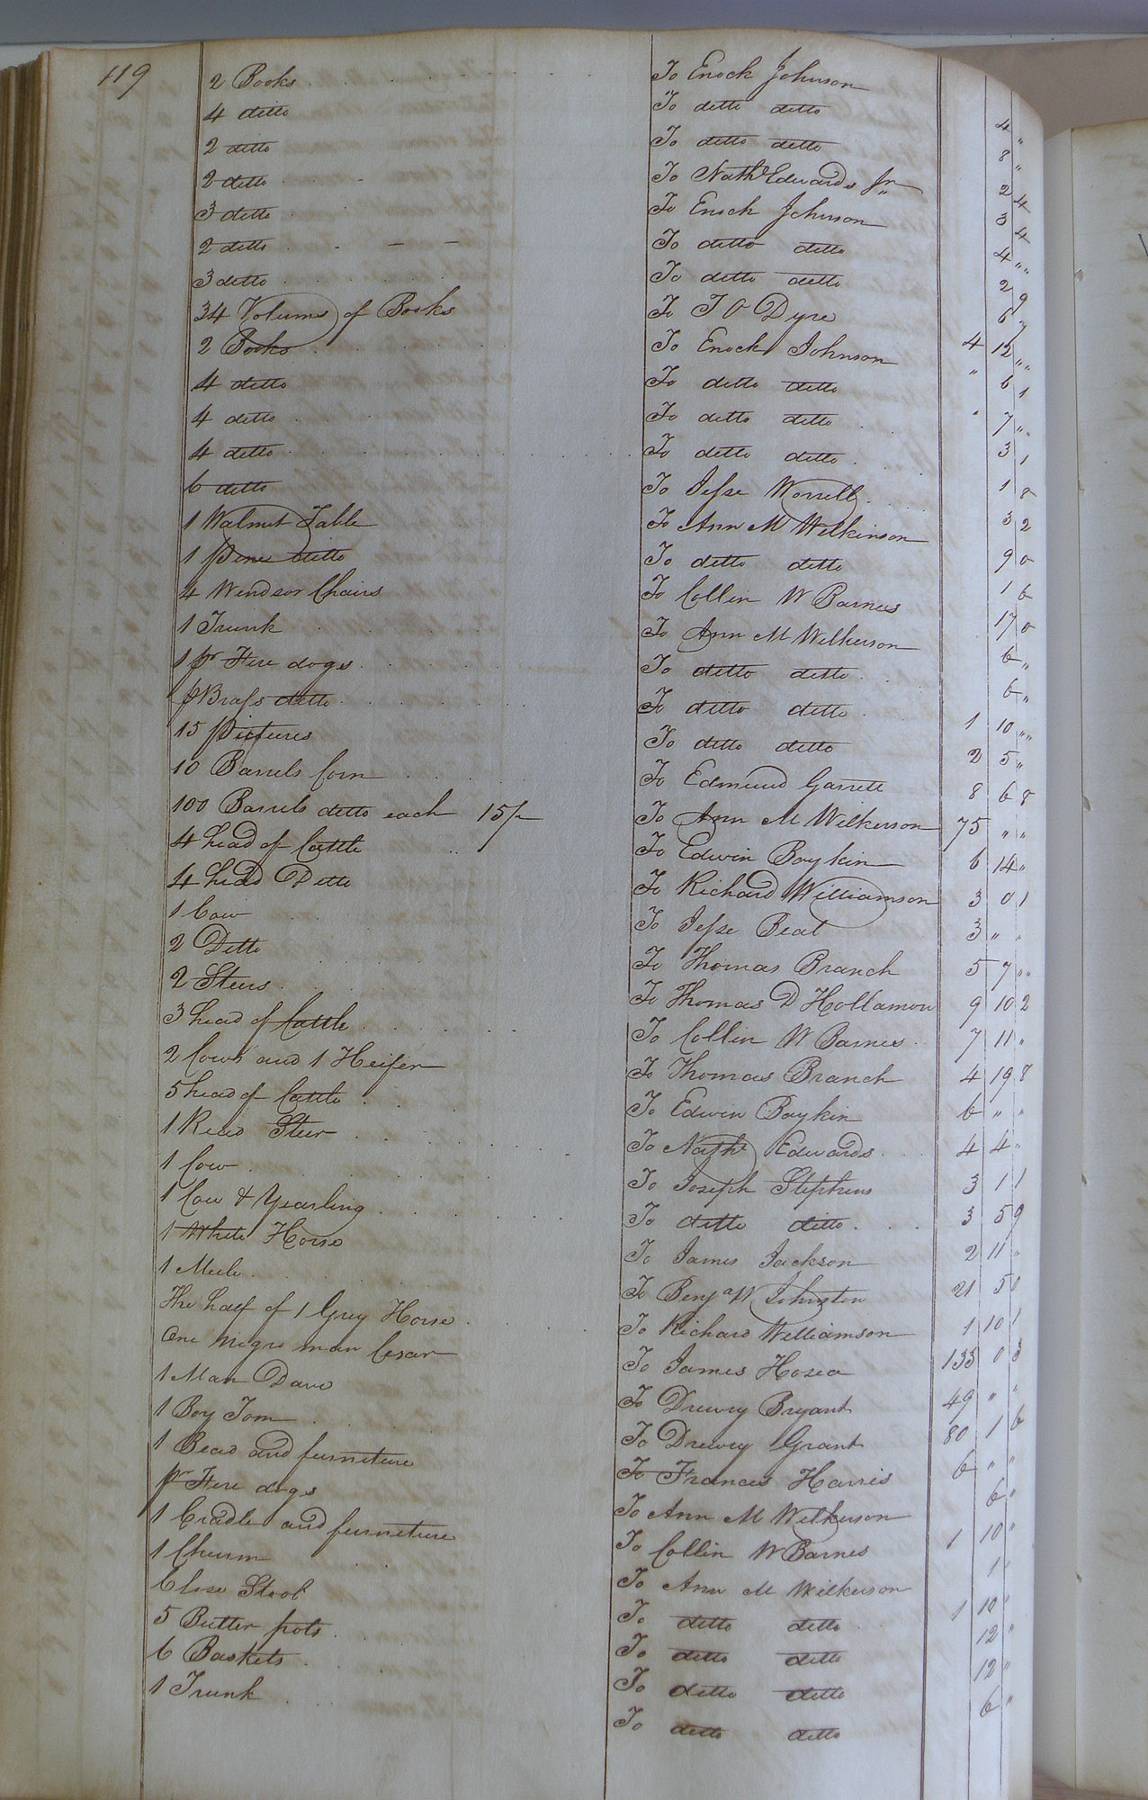 119
2 Books To Enock Johnson 4 "
4 ditto To ditto ditto 8 "
2 ditto To ditto ditto 2 4
2 ditto To Nathl Edwards Jr 3 4
3 ditto To Enoch Johnson 4 "
2 ditto To ditto ditto 2 9
3 ditto To ditto ditto 6 7
34 Volums of Books To J O Dyre 4 12 "
2 Books To Enock Johnson " 6 1
4 ditto To ditto ditto 7 "
4 ditto To ditto ditto 3 1
4 ditto To ditto ditto 1 8
6 ditto To Jesse Worrell 3 2
1 Walnut Table To Ann M Wilkinson 9 0
1 pine ditto To ditto ditto 1 6
4 Windsor Chairs To Collin W Barnes 17 0
1 Trunk To Ann M Wilkerson 6 "
1 pr Fire dogs To ditto ditto 6 "
pr Brass ditto To ditto ditto 1 10 "
15 pictures To ditto ditto 2 5 "
10 Barrels Corn To Edmund Garrett 8 6 8
100 Barrels ditto each 15/- To Ann M Wilkerson 75 " "
4 head of Cattle To Edwin Boykin 6 14 "
4 head Ditto To Richard Williamson 3 0 1
1 Cow To Jesse Beal 3 " "
2 Ditto To Thomas Branch 5 7 "
2 Steers To Thomas D Hollamon 9 10 2
3 head of Cattle To Collin W Barnes 7 11 "
2 Cows and 1 Heifer To Thomas Branch 4 19 8
5 head of Cattle To Edwin Boykin 6 " "
1 Read Steer To Nathl Edwards 4 4 "
1 Cow To Joseph Stephens 3 1 1
1 Cow & Yearling To ditto ditto 3 5 9
1 White Horse To James Jackson 2 11 "
1 Mule To Benja W Johnston 21 5 0
The half of 1 Grey Horse To Richard Williamson 1 10 1
One negro man Cesar To James Hosea 133 0 3
1 Man Dave To Drewry Bryant 49 " "
1 Boy Tom To Drewry Grant 80 1 6
1 Bead and furneture To Frances Harris 6 " "
pr Fire dogs To Ann M Wilkerson 6 "
1 Cradle and furneture To Collin W Barnes 1 10 "
1 Churn To Ann M Wilkerson 1 "
Close Stool To ditto ditto 1 10 "
5 Butter pots To ditto ditto 12 "
6 Baskets To ditto ditto 12 "
1 Trunk To ditto ditto 6 "